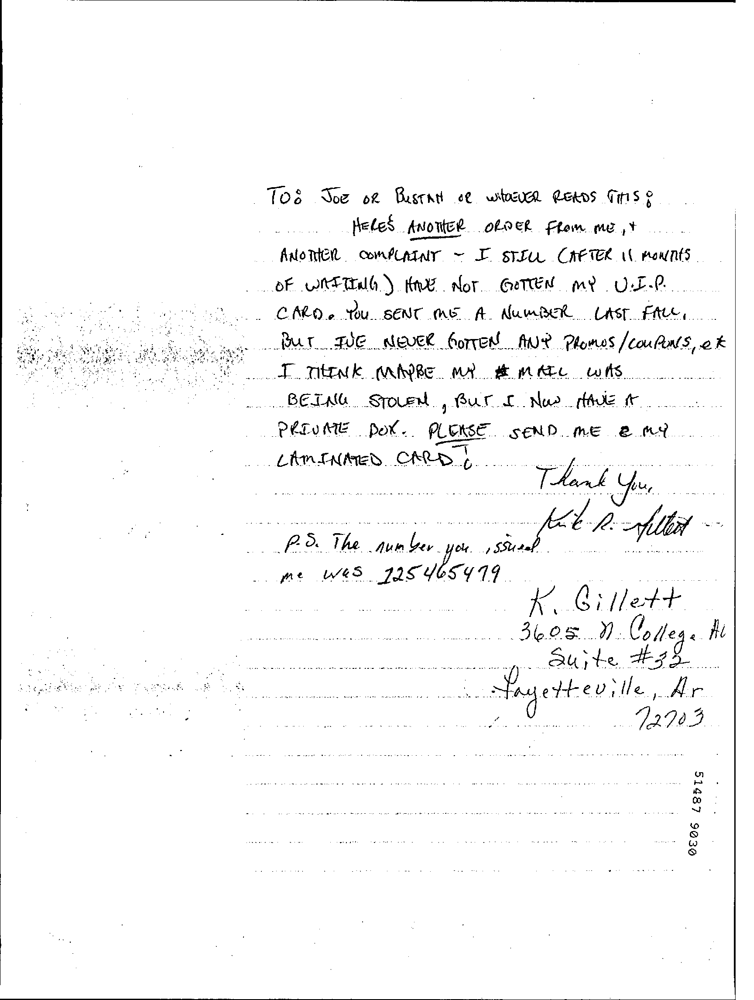 TO: JOE OR BUSTAH OR WHOEVER READS THIS:
HERE'S ANOTHER ORDER FROM ME, +
ANOTHER COMPLAINT - I STILL (AFTER 11 MONTHS
OF WAITING) HAVE NOT GOTTEN MY U.I.P.
CARD. YOU SENT ME A NUMBER LAST FALL,
BUT IVE NEVER GOTTEN ANY PROMOS/COUPONS, etc
I THINK MAYBE MY MAIL WAS
BEING STOLEN, BUT I NOW HAVE A
PRIVATE BOX. PLEASE SEND ME MY
LAMINATED CARD!
Thank You,
Kirk R. Gillett
P.S. The number you issued
me was 225465479
K. Gillett
3605 N College Av
Suite #32
Fayetteville, Ar
72703
51487 9030